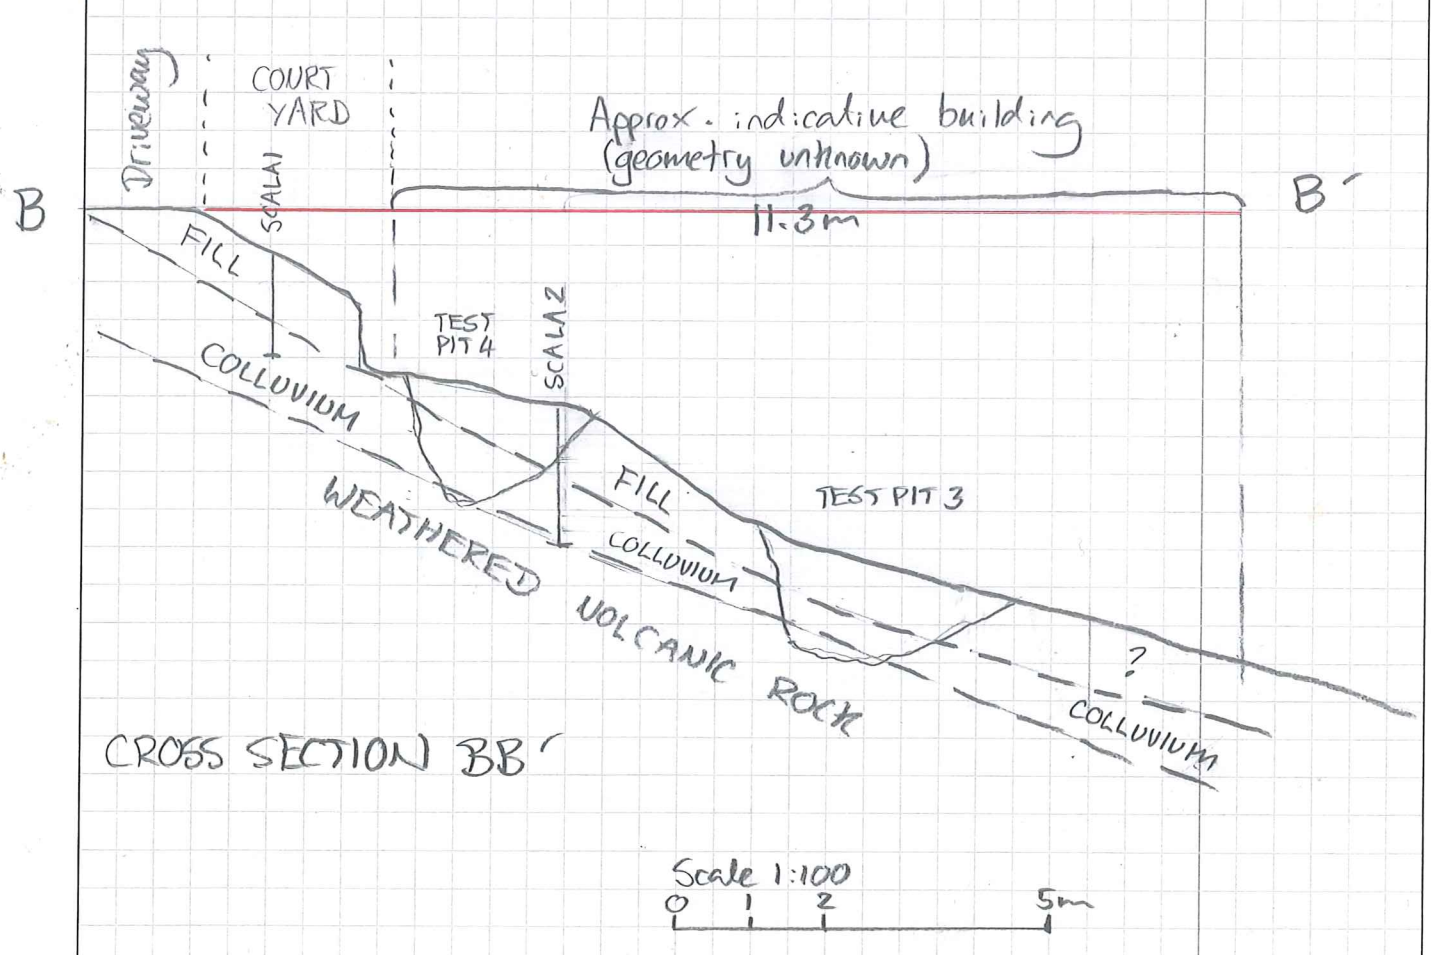 Driveway
COURT
YARD
Approx. indicative building
(geometry unknown)
B
B'
SCALA1
11.3m
FILL
TEST
PIT 4
SCALA2
COLLUVIUM
FILL
TEST PIT 3
WEATHERED VOLCANIC ROCK
COLLUVIUM
?
COLLUVIUM
CROSS SECTION BB'
Scale 1:100
0 1 2 5m